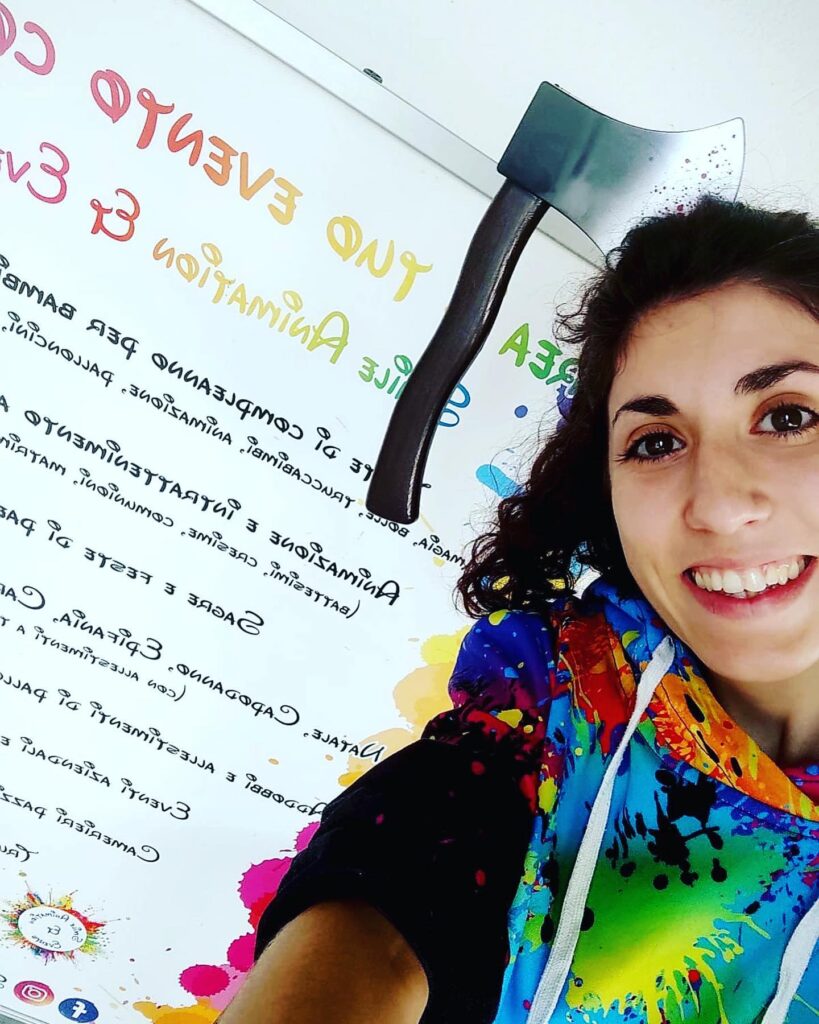 REA
TUO EVENTO CO
Smile Animation & Eve
te di compleanno per bambi
magia, bolle, truccabimbi, animazione, palloncini,
Animazione e intrattenimento a
(battesimi, cresime, comunioni, matrim
Sagre e feste di pae
Natale, Capodanno, Epifania, Car
(con allestimenti a t
Addobbi e allestimenti di pallo
Eventi aziendali e
Camerieri pazz
Tru
Smile Animation
&
Eventi